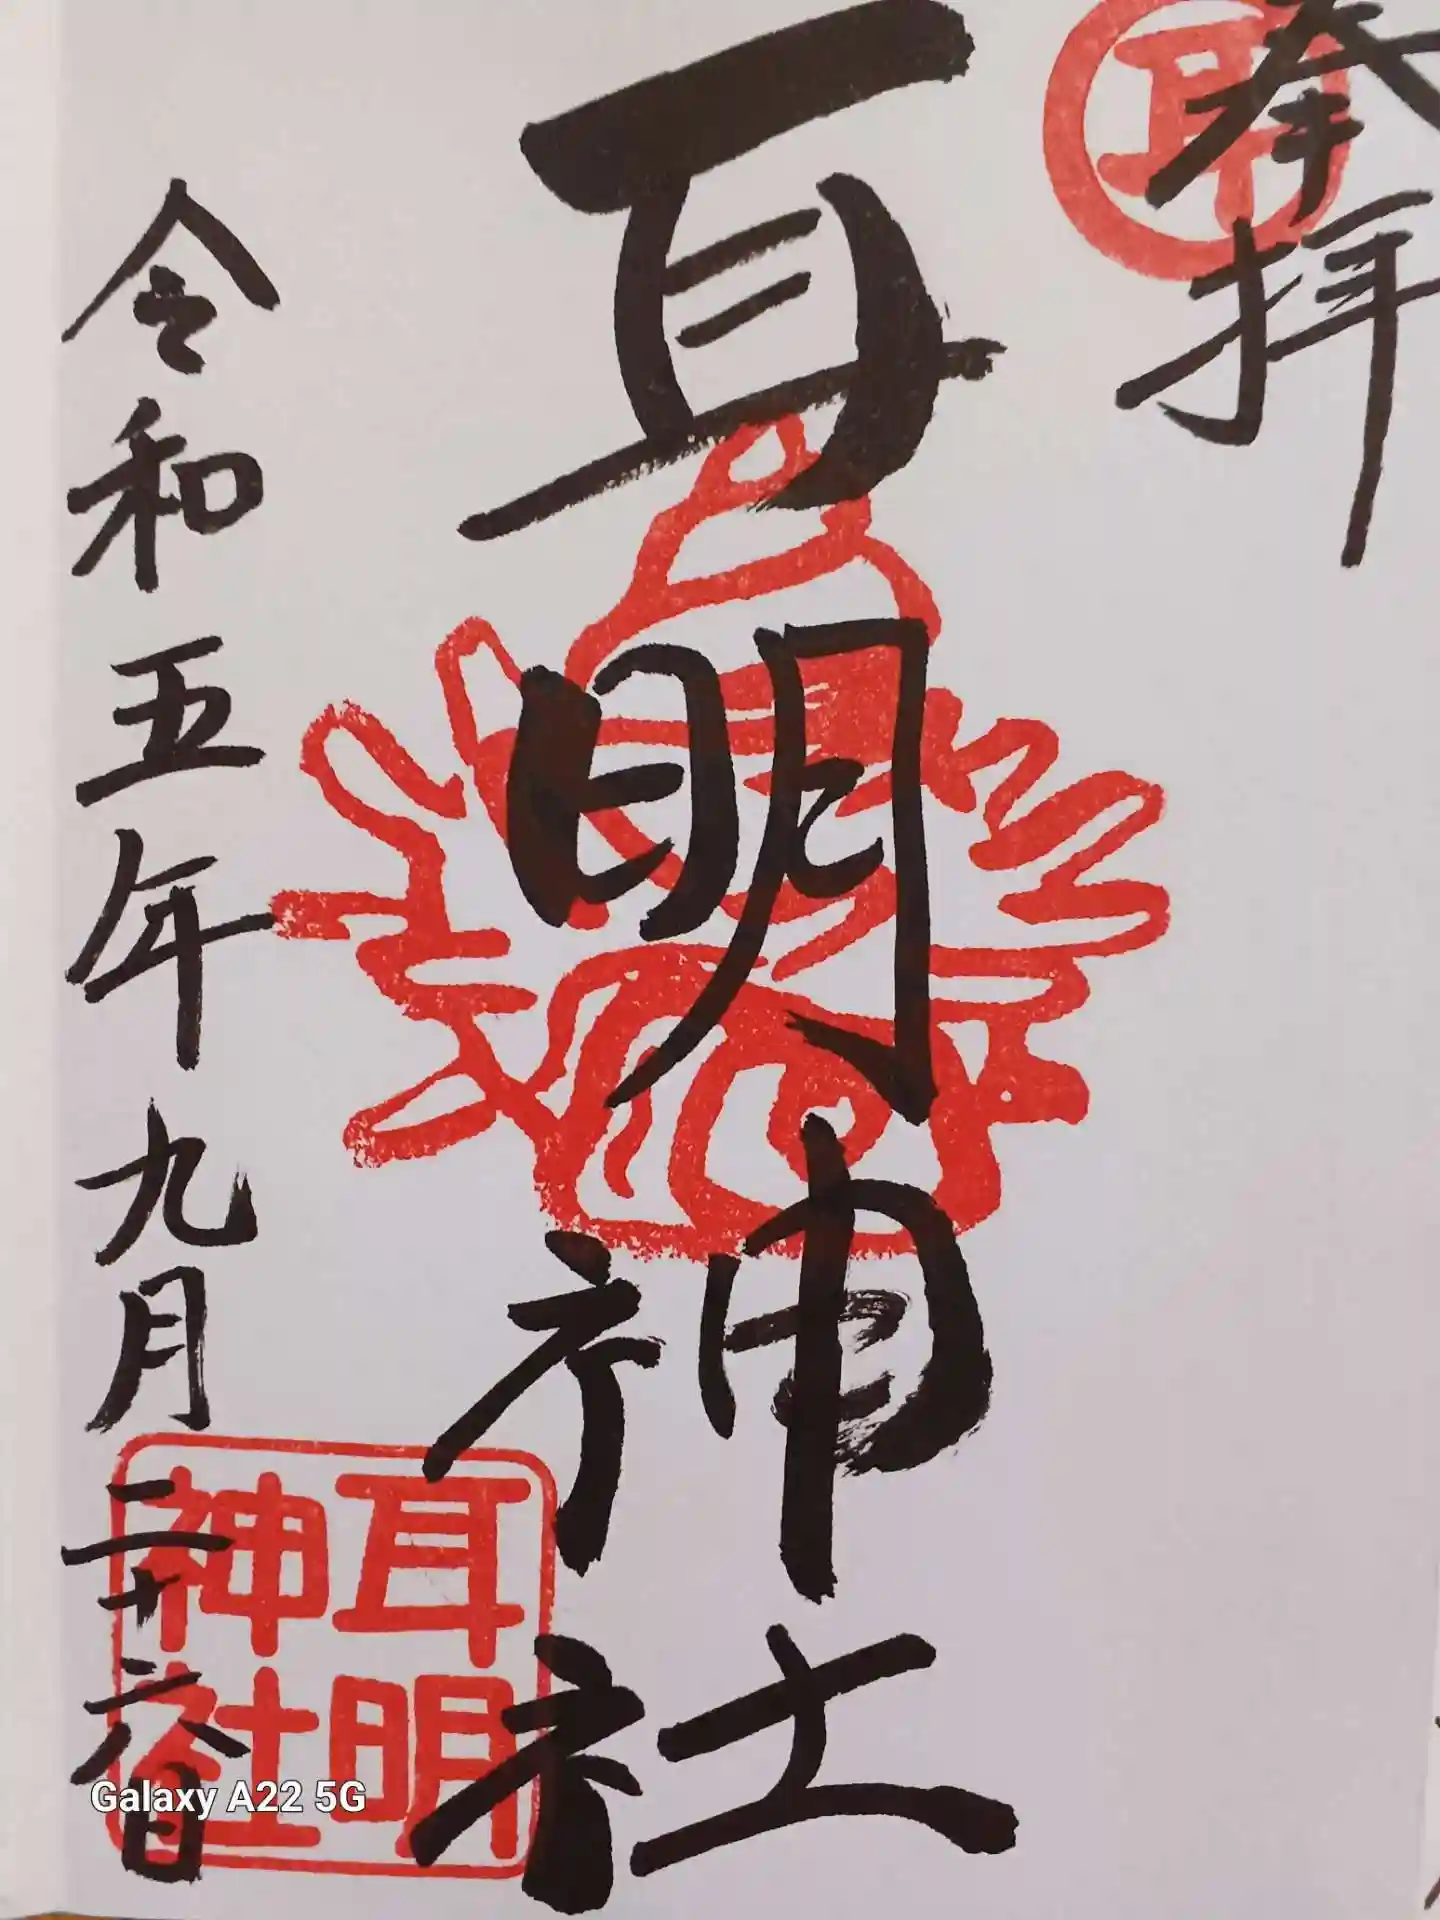 奉拝
耳
耳明神社
令和五年九月二十六日
耳明
神社
Galaxy A22 5G